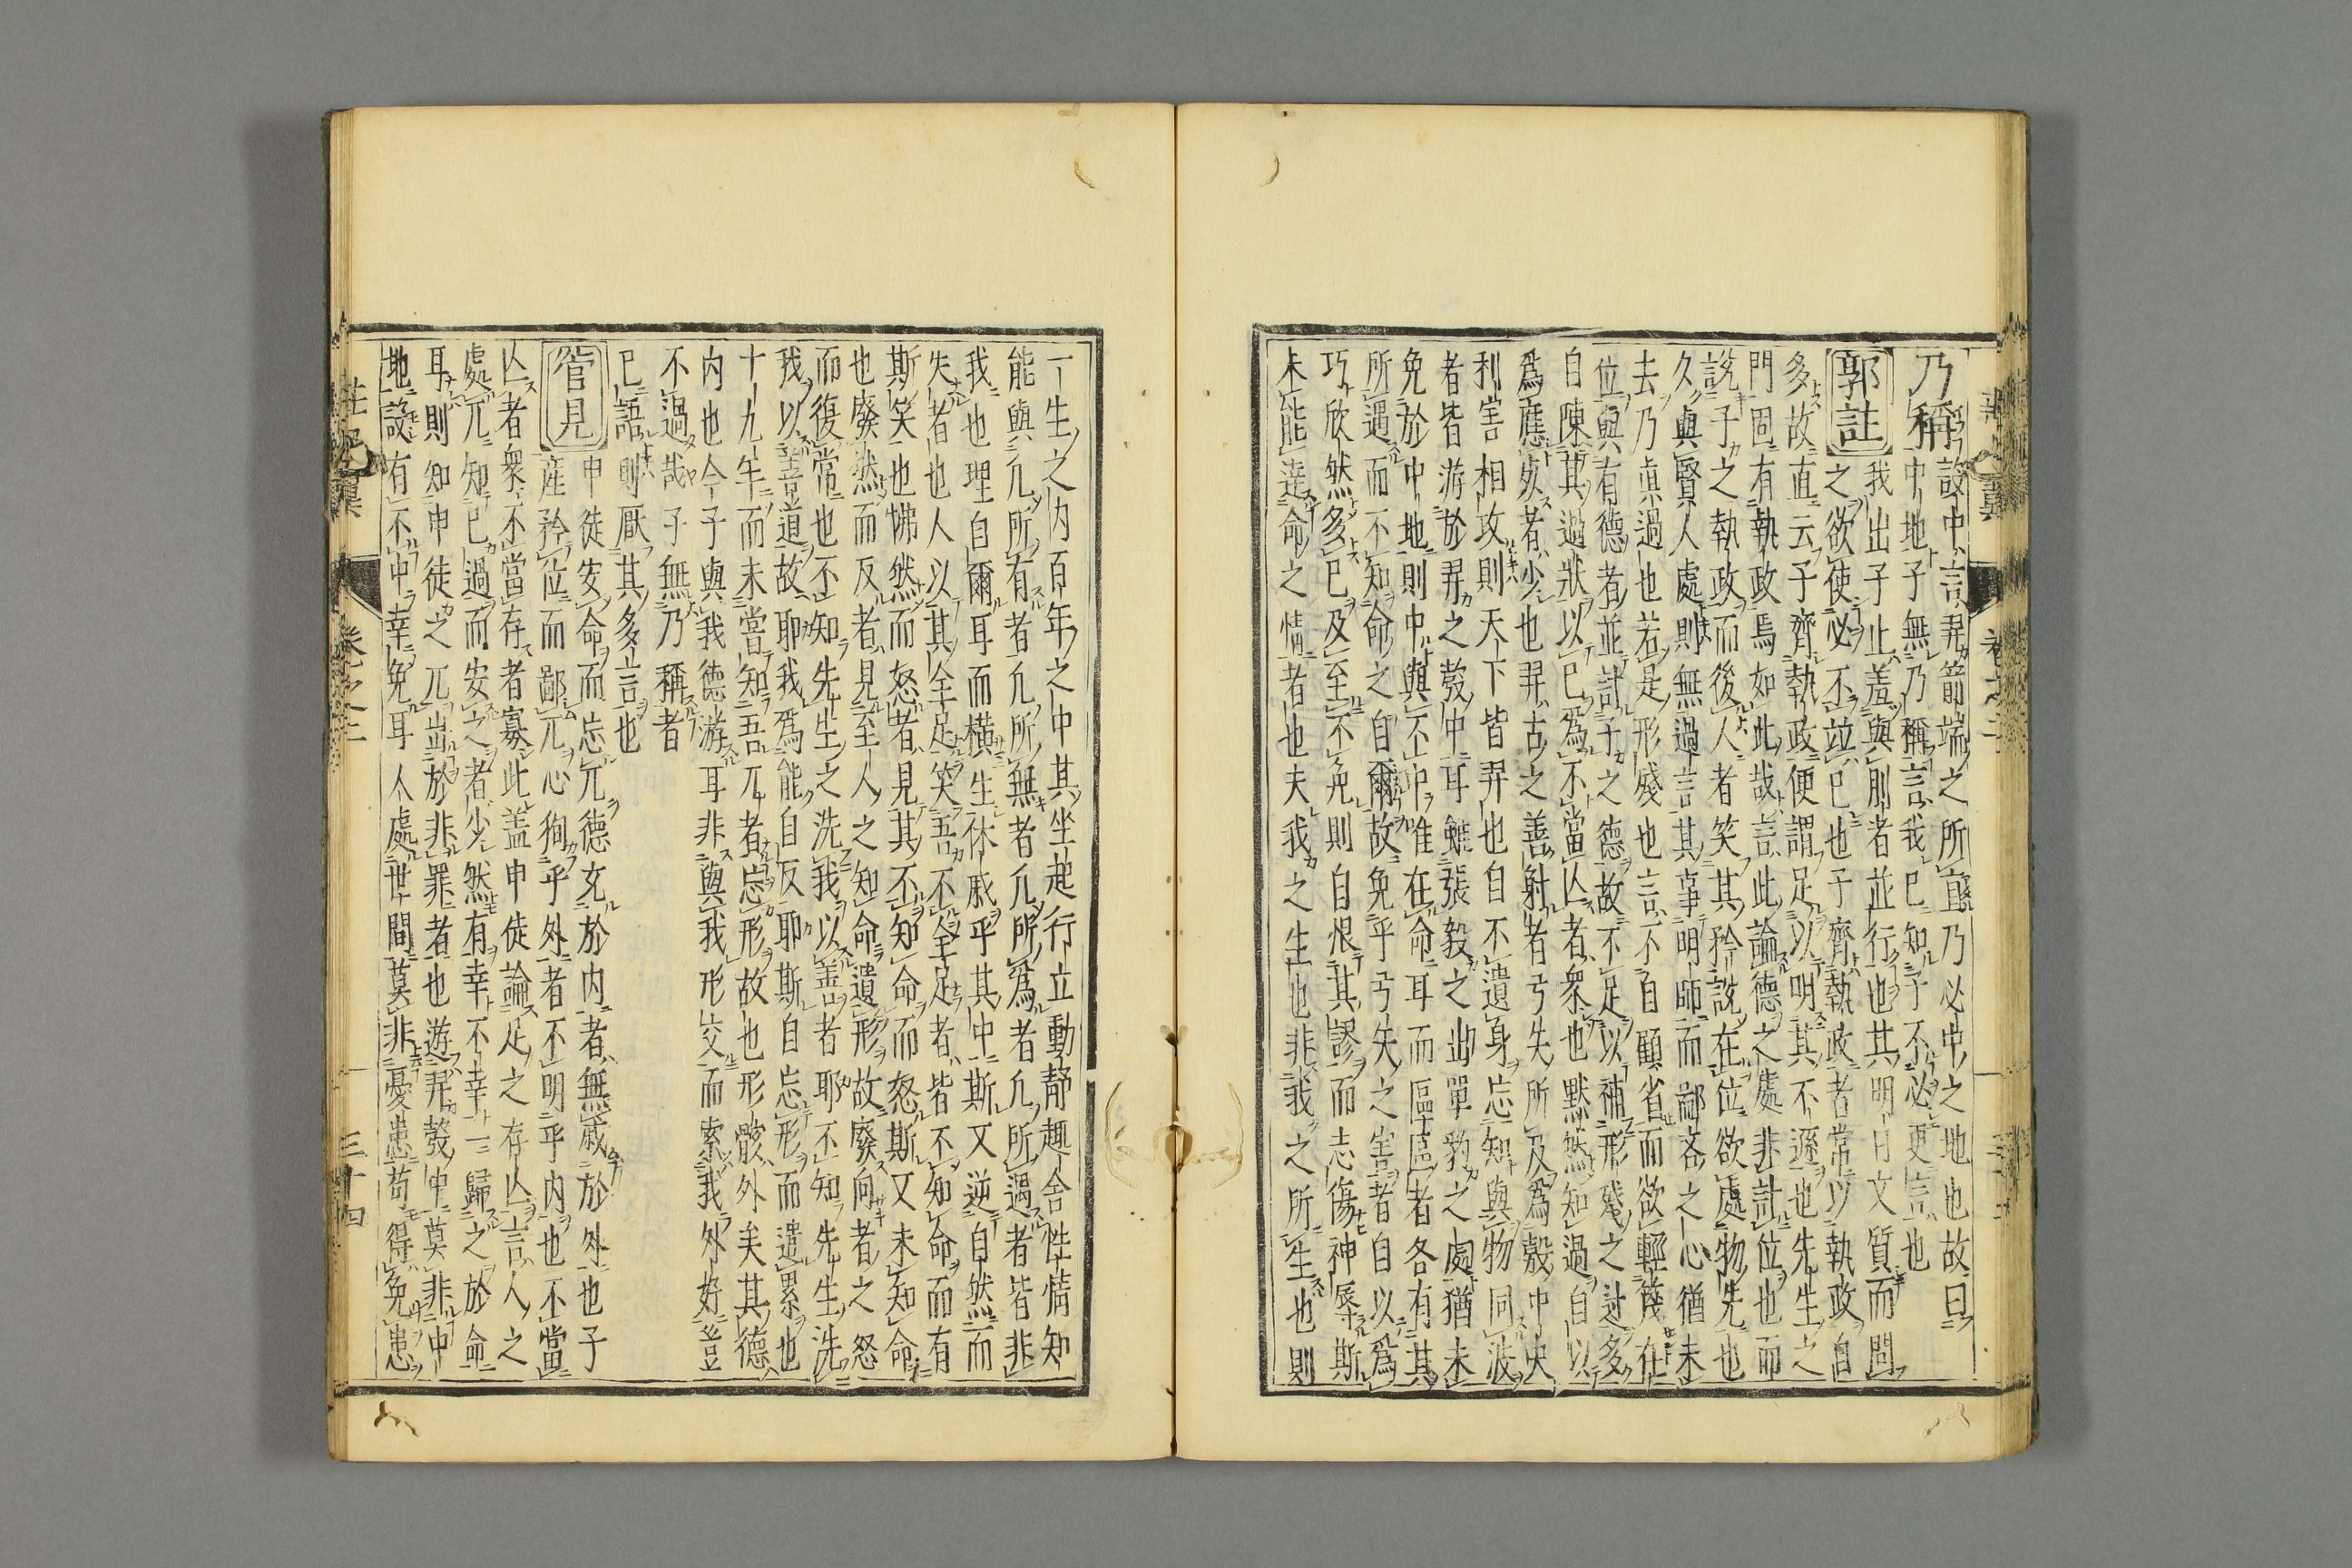 乃稱 彀中言羿箭端之所直乃必中之地也故曰
中地子無乃稱言我已知子不必更言也
郭註 我出子止羞與刖者並行也其明日又質而問
之欲使必不竝已也子齊執政者常以執政自
多故直云子齊執政便謂足以明其不遜也先生之
門固有執政焉如此哉言此論德之處非計位也而
說子之執政而後人者笑其矜說在位欲處物先也
久與賢人處則無過言其事明師而鄙吝之心猶未
去乃眞過也若是形殘也言不自顧省而欲輕蔑在
位與有德者並計子之德故不足以補形殘之过多
自陳其過狀以已爲不當亡者衆也默然知過自以
爲應死者少也羿古之善射者弓矢所及爲彀中夫
利害相攻則天下皆羿也自不遺身忘知與物同波
者皆游於羿之彀中耳雖張毅之出單豹之處猶未
免於中地則中與不中唯在命耳而區區者各有其
所遇而不知命之自爾故免乎弓矢之害者自以爲
巧欣然多已及至不免則自恨其謬而志傷神辱斯
未能達命之情者也夫我之生也非我之所生也則
一生之内百年之中其坐起行立動靜趣舍性情知
能與凡所有者凡所無者凡所爲者凡所遇者皆非
我也理自爾耳而橫生休戚乎其中斯又逆自然而
失者也人以其全足笑吾不全足者皆不知命而有
斯笑也怫然而怒者見其不知命而怒斯又未知命
也廢然而反者見至人之知命遺形故廢向者之怒
而復常也不知先生之洗我以善者耶不知先生洗
我以善道故耶我爲能自反耶斯自忘形而遺累也
十九年而未嘗知吾兀者忘形故也形骸外矣其德
内也今子與我德游耳非與我形交而索我外好豈
不過哉子無乃稱者
已語則厭其多言也
管見 申徒安命而忘兀德充於内者無戚於外也子
産矜位而鄙兀心徇乎外者不明乎内也不當
亡者衆不當存者寡此盖申徒論足之存亡言人之
處兀知已過而安之者少然有幸不幸一歸之於命
耳則知申徒之兀出於非罪者也游羿彀中莫非中
地設有不中幸免耳人處世間莫非憂患苟得免患
卷之二 三十四